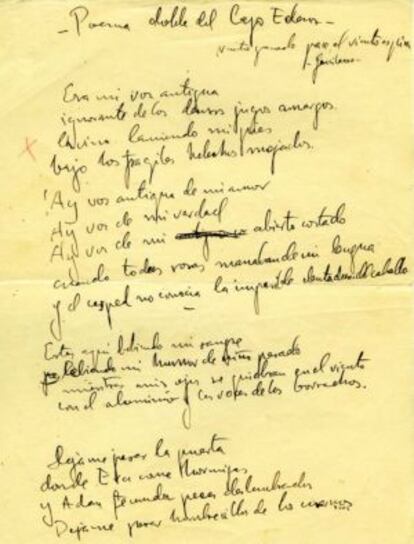 - Poema doble del Lago Edem -
nuestro ganado pace el viento espira
- Garcilaso -
Era mi vos antigua
ignorante de los densos jugos amargos
la vino lamiendo mis pies
bajo los fragiles helechos mojados.
¡Ay vos antigua de mi amor
Ay vos de mi verdad
Ay vos de mi abierto costado
cuando todas las rosas manaban de mi lengua
y el cesped no conocia la impasible dentadura del caballo
Estas aqui bebiendo mi sangre
bebiendo mi humor de niño pasado
mientras mis ojos se quiebran en el viento
con el aluminio y las voces de los borrachos.
Dejame pasar la puerta
donde Eva come hormigas
y Adan fecunda peces deslumbrados
Dejame pasar hombrecillo de los cuernos